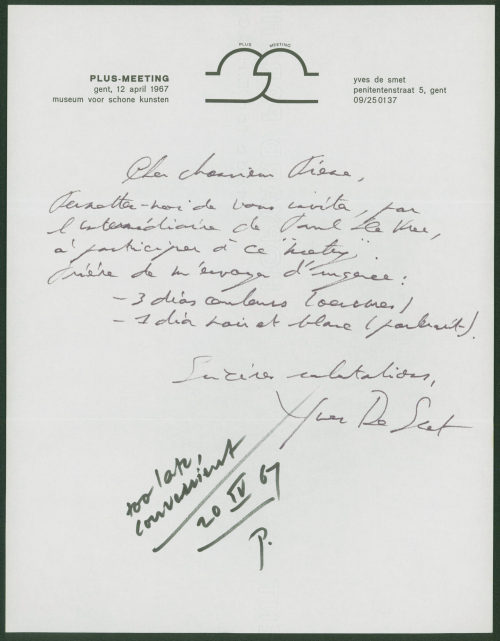 PLUS MEETING
PLUS-MEETING
gent, 12 april 1967
museum voor schone kunsten
yves de smet
penitentenstraat 5, gent
09/250137
Cher Monsieur
Permettez-moi de vous inviter, par
l'intermédiaire de Paul De Vree,
à participer à ce "meeting".
Prière de m'envoyer d'urgence :
- 3 dias couleurs (oeuvres)
- 1 dia noir et blanc (portrait).
Sincères salutations,
Yves De Smet
too late,
20 IV 67
P.